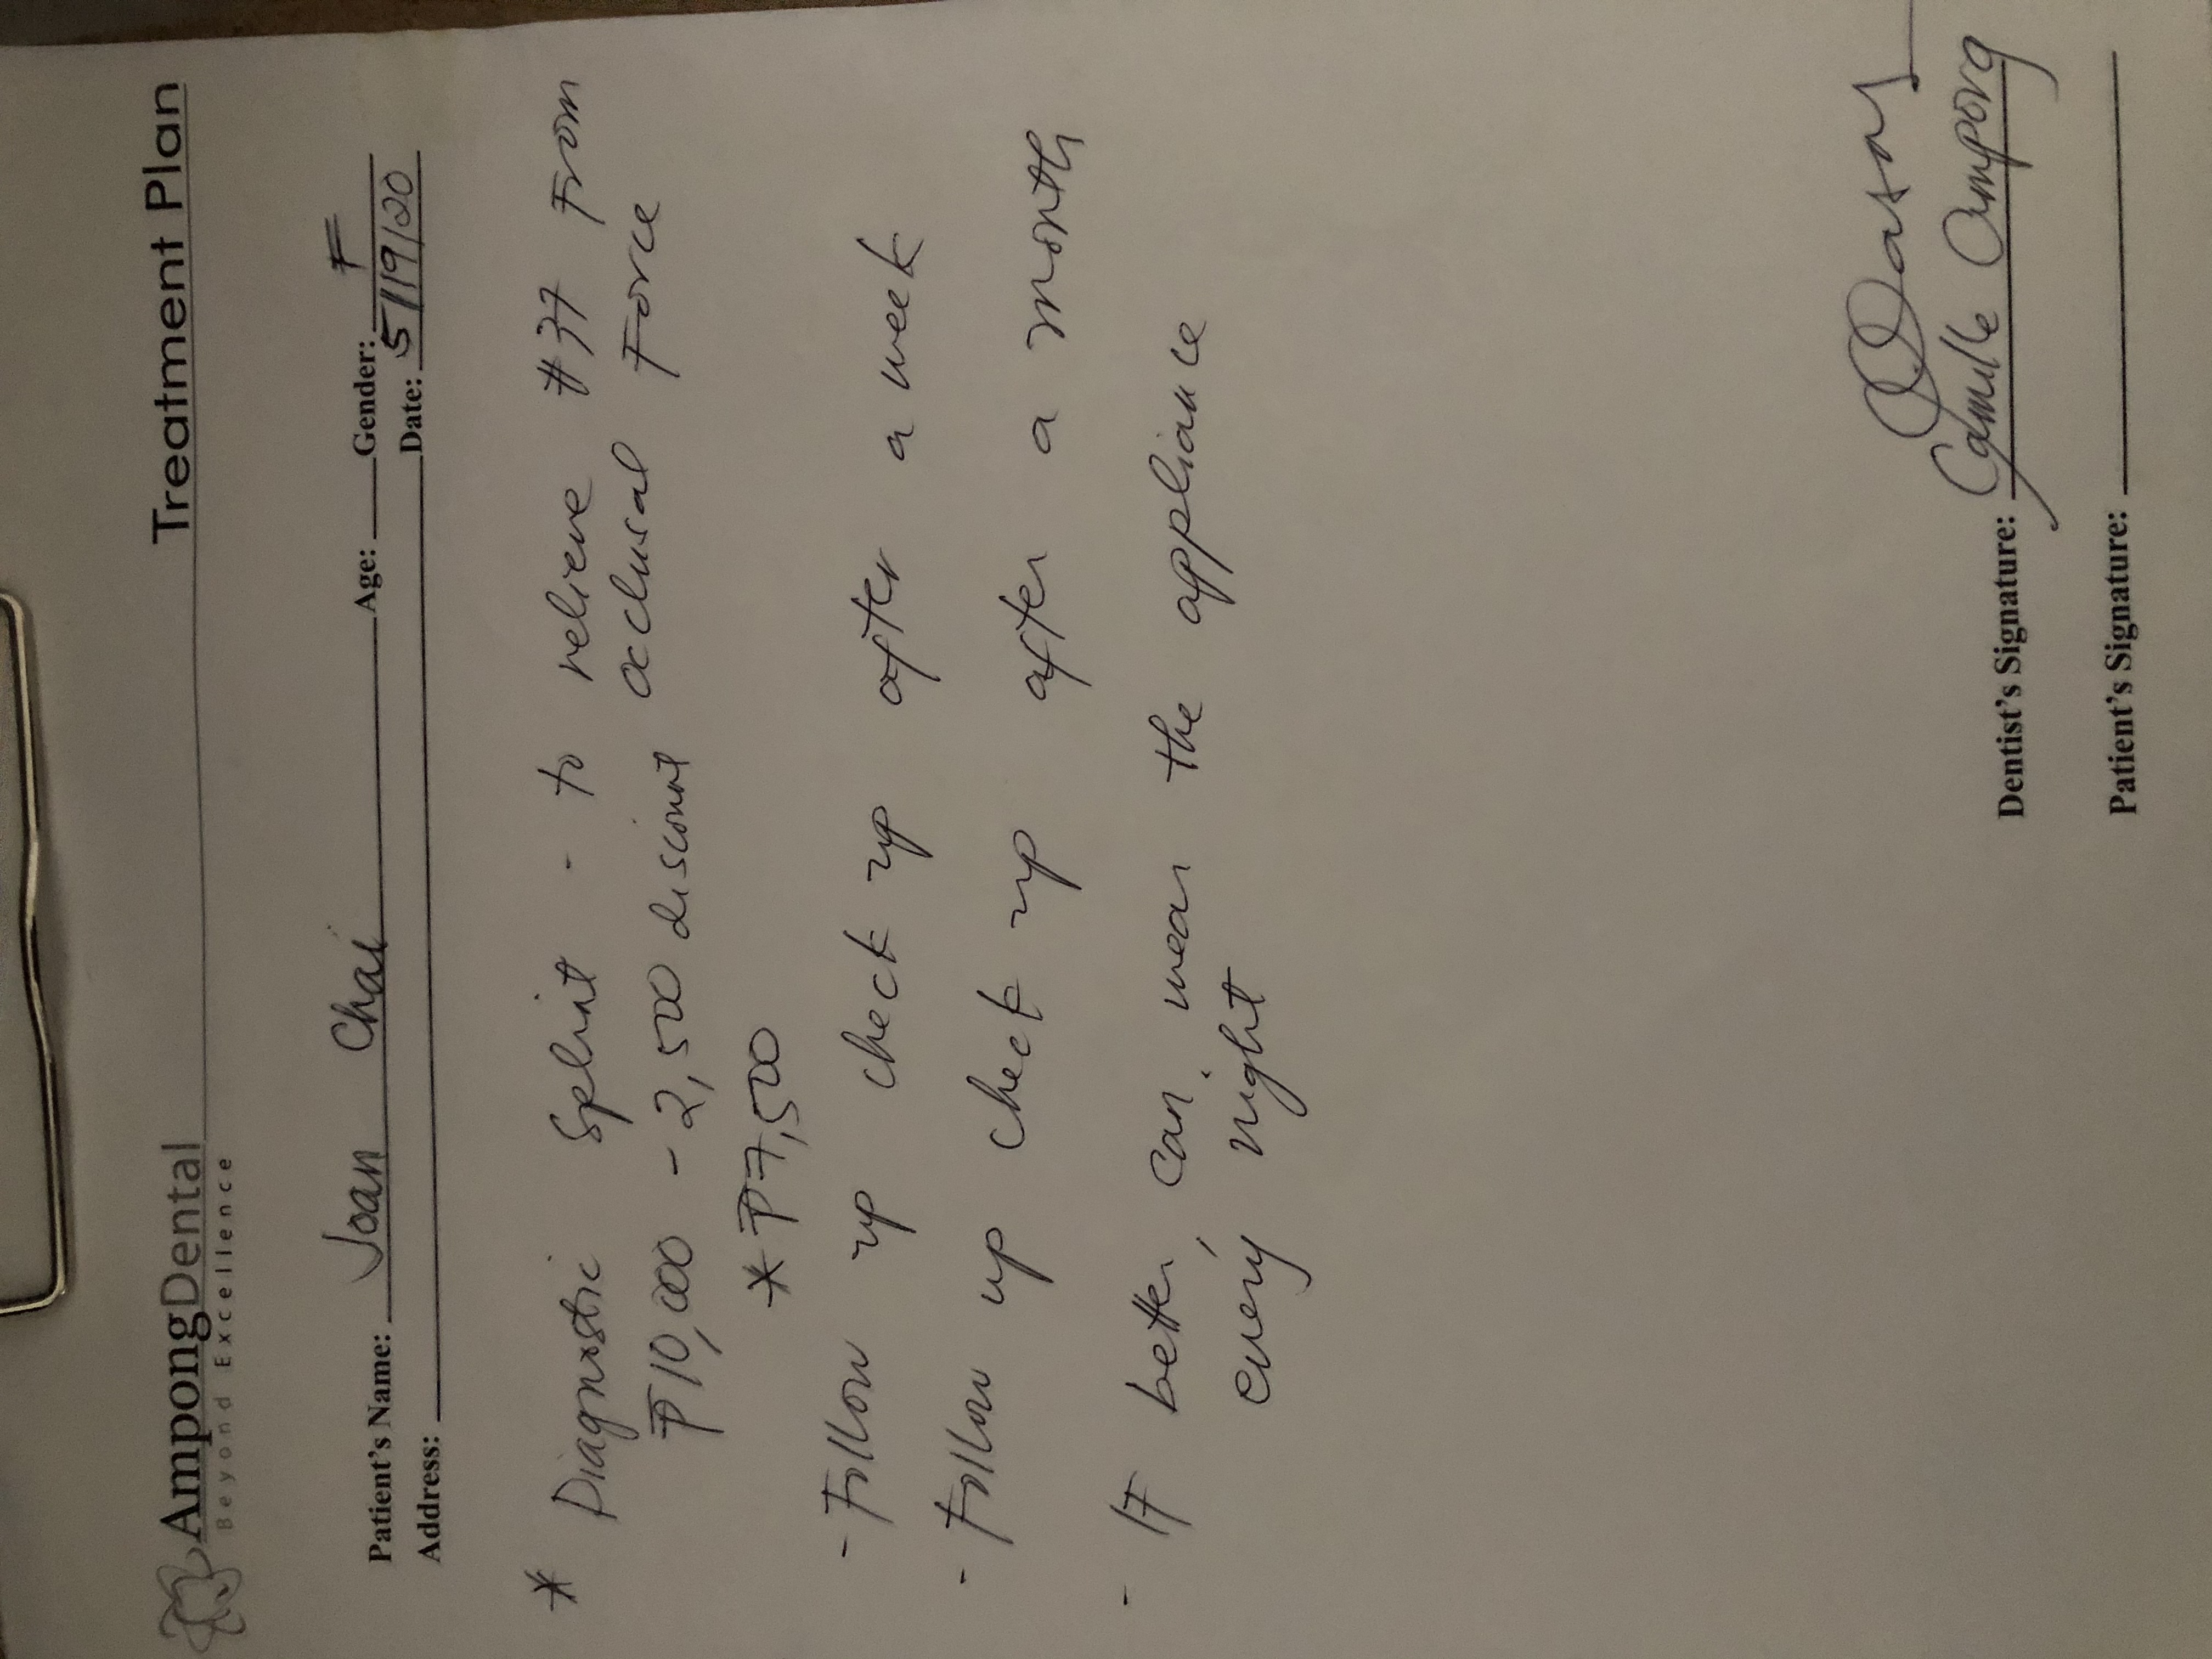 AmpongDental
Beyond Excellence
Treatment Plan
Patient's Name: Joan Chai Age: Gender: F
Address: Date: 5/19/20
* Diagnostic Splint - to relieve #37 From
occlusal Force
₱10,000 - 2,500 discount
* ₱7,500
- Follow up check up after a week
- Follow up check up after a month
- If better, can wear the appliance
every night
Dentist's Signature: Camille Ampong
Patient's Signature: